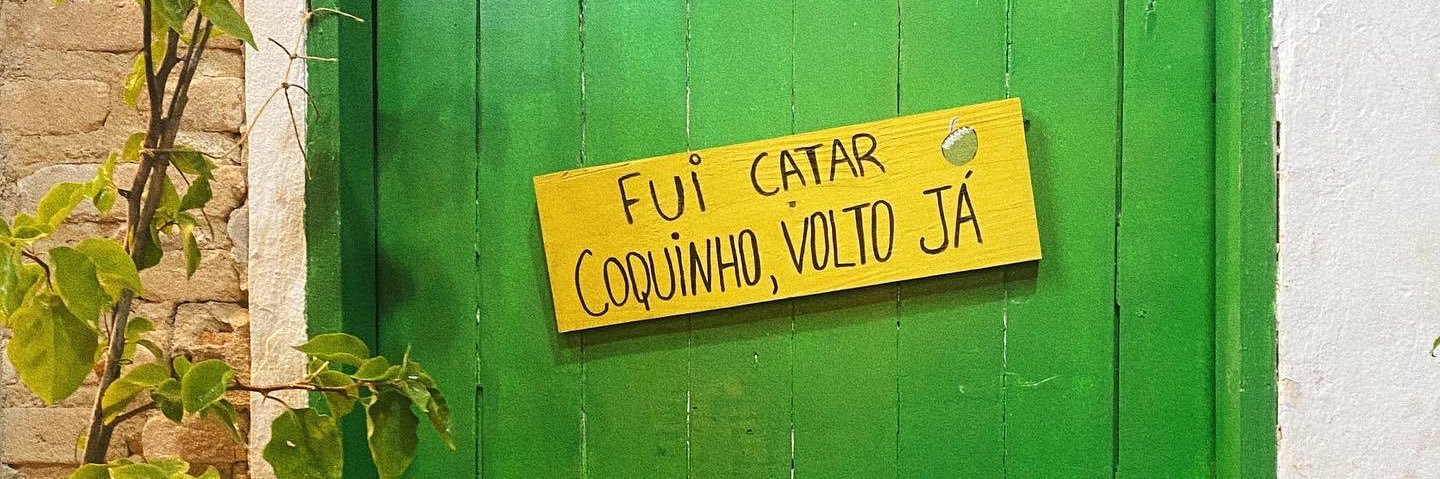 FUi CATAR
COQUiNHO, VOLTO JÁ